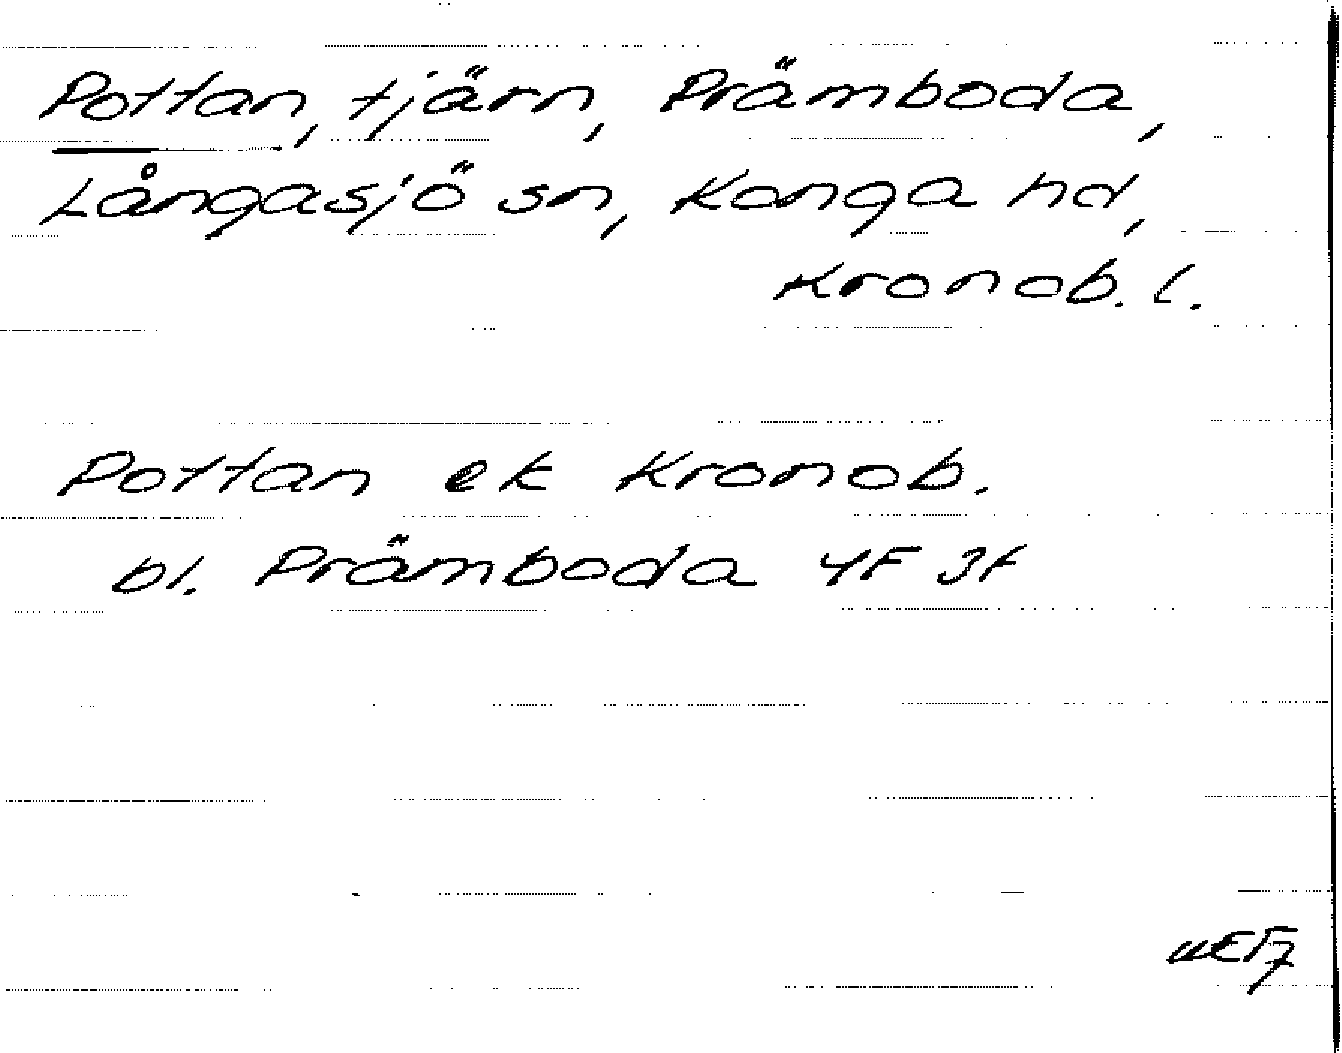 Pottan, tjärn, Prämboda,
Långasjö sn, Konga hd,
Kronob. l.
Pottan ek Kronob.
bl. Prämboda 4F 3f